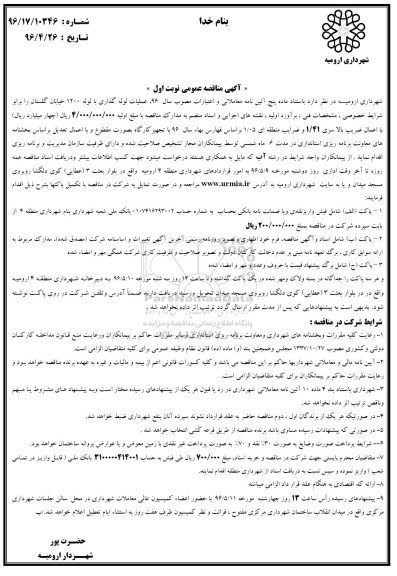 بنام خدا
شماره : ۹۶/۱۷/۱۰۳۴۶
تاریخ : ۹۶/۴/۲۶
شهرداری ارومیه
« آگهی مناقصه عمومی نوبت اول »
شهرداری ارومیه در نظر دارد باستناد ماده پنج آئین نامه معاملاتی و اعتبارات مصوب سال ۹۶، عملیات لوله گذاری با لوله ۱۲۰۰ خیابان گلستان را برابر
شرایط خصوصی ، مشخصات فنی ، برآورد اولیه ، نقشه های اجرایی و اسناد منضم به مدارک مناقصه با مبلغ اولیه ۴/۰۰۰/۰۰۰/۰۰۰ ریال (چهار میلیارد ریال)
با اعمال ضریب بالا سری ۱/۴۱ و ضرایب منطقه ای ۱/۰۵ براساس فهارس بهاء سال ۹۶ با تجهیز کارگاه بصورت مقطوع و با اعمال تعدیل براساس بخشنامه
های معاونت برنامه ریزی استانداری در مدت ۶ ماه شمسی توسط پیمانکاران مجاز تشخیص صلاحیت شده و دارای ظرفیت سازمان مدیریت و برنامه ریزی
اقدام نماید . از پیمانکاران واجد شرایط در رشته آب که مایل به همکاری هستند درخواست میشود جهت کسب اطلاعات بیشتر ودریافت اسناد مناقصه همه
روزه تا آخر وقت اداری روز دوشنبه مورخه ۹۶/۵/۹ به امور قراردادهای شهرداری منطقه ۴ ارومیه واقع در بلوار بعثت ۲ (عطایی) کوی دلگشا روبروی
مسجد میدان و یا به سایت شهرداری ارومیه به آدرس www.urmia.ir مراجعه و در صورت تمایل به شرکت در مناقصه با تکمیل پاکتها بشرح ذیل اقدام
فرمایند:
۱ – پاکت (الف) شامل فیش واریزنقدی ویا ضمانت نامه بانکی بحساب به شماره حساب ۰۱۰۷۴۱۶۲۹۳۰۰۲ بانک ملی شعبه شهرداری بنام شهرداری منطقه ۴ از
بابت سپرده شرکت در مناقصه بمبلغ ۲۰۰/۰۰۰/۰۰۰ ریال
۲ – پاکت (ب) شامل اسناد وآگهی مناقصه، فرم خود اظهاری و تصویر روزنامه رسمی آخرین آگهی تغییرات و اساسنامه شرکت (مصدق شده)، مدارک مربوط به
ارائه سوابق کاری ، برگ تعهد نامه مبنی بر عدم دخالت کارکنان دولت و تصویر صلاحیت و ظرفیت کاری شرکت همگی مهر و امضاء شده
۳ – پاکت (ج) شامل برگ پیشنهاد قیمت با حروف وعدد و مهر و امضاء شده
و هر سه پاکت را جداگانه در بسته ولاک ومهر شده در یک پاکت گذاشته و تا ساعت ۱۴ روز سه شنبه مورخه ۹۶/۵/۱۰ به دبیرخانه شهرداری منطقه ۴ ارومیه
واقع در در بلوار بعثت ۲ (عطایی) کوی دلگشا روبروی مسجد میدان تحویل ورسید دریافت دارند ضمناً آدرس وتلفن شرکت در روی پاکت نوشته
شود. بدیهی است به پیشنهادهایی که پس از مدت مقرر ارسال گردد ترتیب اثر داده نخواهد شد.
شرایط شرکت در مناقصه :
۱– رعایت کلیه مقررات وبخشنامه های شهرداری ومعاونت برنامه ریزی استانداری وسایر مقررات حاکم بر پیمانکاران ورعایت منع قانون مداخله کارکنان
دولتی و کشوری مصوب ۱۳۳۷/۱۰/۲۷ مجلس وهمچنین بند (و) ماده (ده) قانون نظام وظیفه عمومی برای کلیه متقاضیان الزامی است.
۲– آئین نامه مالی و معاملاتی شهرداریها حاکم بر این مناقصه می باشد و کلیه کسورات قانونی اعم از بیمه و مالیات و غیره به عهده برنده مناقصه خواهد بود و
رعایت مقررات حاکم بر پیمانکاران برای کلیه متقاضیان الزامی است.
۳– شهرداری باستناد بند ۴ ماده ۱۰ آئین نامه معاملاتی شهرداری در رد یا قبول هر یک از پیشنهادهای رسیده مختار است وبه پیشنهاد های مشروط یا مبهم
وناقص ترتیب اثر داده نخواهد شد.
۴– در صورتیکه هر یک از برندگان اول ، دوم مناقصه حاضر به عقد قرارداد نشوند سپرده آنان بنفع شهرداری ضبط خواهد شد.
۵– در صورتی که پیشنهادات رسیده مساوی باشد برنده مناقصه از طریق قرعه کشی انتخاب خواهد شد .
۶– شرایط پرداخت صورت وضایع به صورت ۳۰٪ نقد و ۷۰٪ به صورت پرداخت غیر نقدی با زمین معوض و یا عوارض پروانه ساختمان خواهد بود.
۷– متقاضیان محترم بایستی جهت شرکت در مناقصه و خرید اسناد، مبلغ ۷۰۰/۰۰۰ ریال طی فیش به حساب ۳۱۰۰۰۰۰۴۱۴۰۰۱ بانک ملی ( قابل واریز در تمامی
شعب ) واریز نموده و سپس نسبت به دریافت اسناد از شهرداری منطقه اقدام نمایند.
۸– ارائه کد اقتصادی به هنگام عقد قرار داد الزامی میباشد
۹– پیشنهادهای رسیده رأس ساعت ۱۳ روز چهارشنبه مورخه ۹۶/۵/۱۱ با حضور اعضاء کمیسیون عالی معاملات شهرداری در محل سالن جلسات شهرداری
مرکزی واقع در میدان انقلاب ساختمان شهرداری مرکزی مفتوح ، قرائت و نظر کمیسیون ظرف هفت روز به استثناء ایام تعطیل اعلام خواهد شد.
حضرت پور
شهردار ارومیه